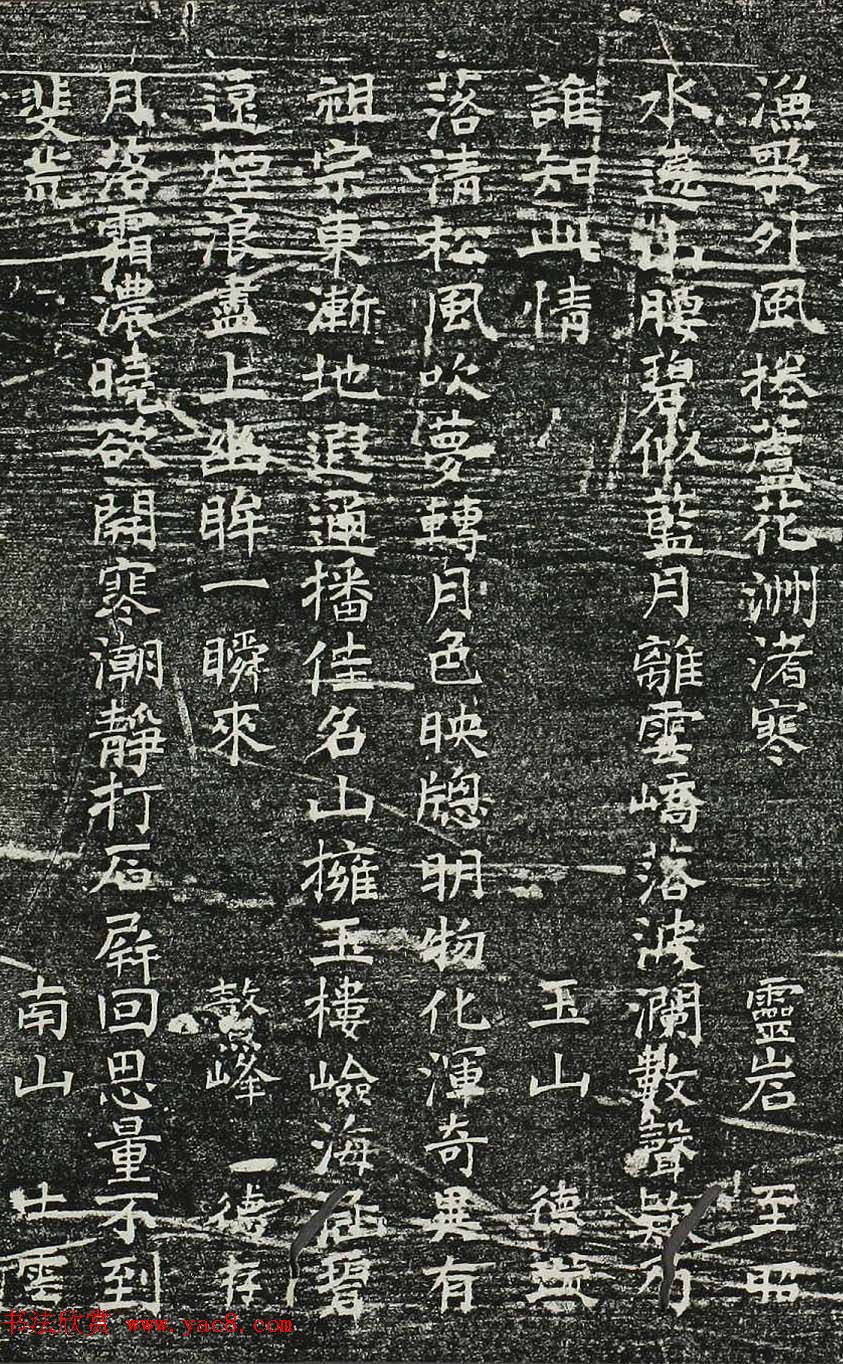 漁歌外風捲蘆花洲渚寒
靈岩 至昭
水遶山腰碧似藍月離雲嶠落波瀾數聲欸乃
誰知此情
玉山 德
落清松風吹夢轉月色映牕明物化渾奇異有
祖宗東漸地遐邇播佳名山擁玉樓嶮海涵碧
遠煙浪盡上幽眸一瞬來
鼇峰 德存
月落霜濃曉欲開寒潮靜打石屏回思量不到
斐
南山 士雲
书法欣赏 www.yac8.com